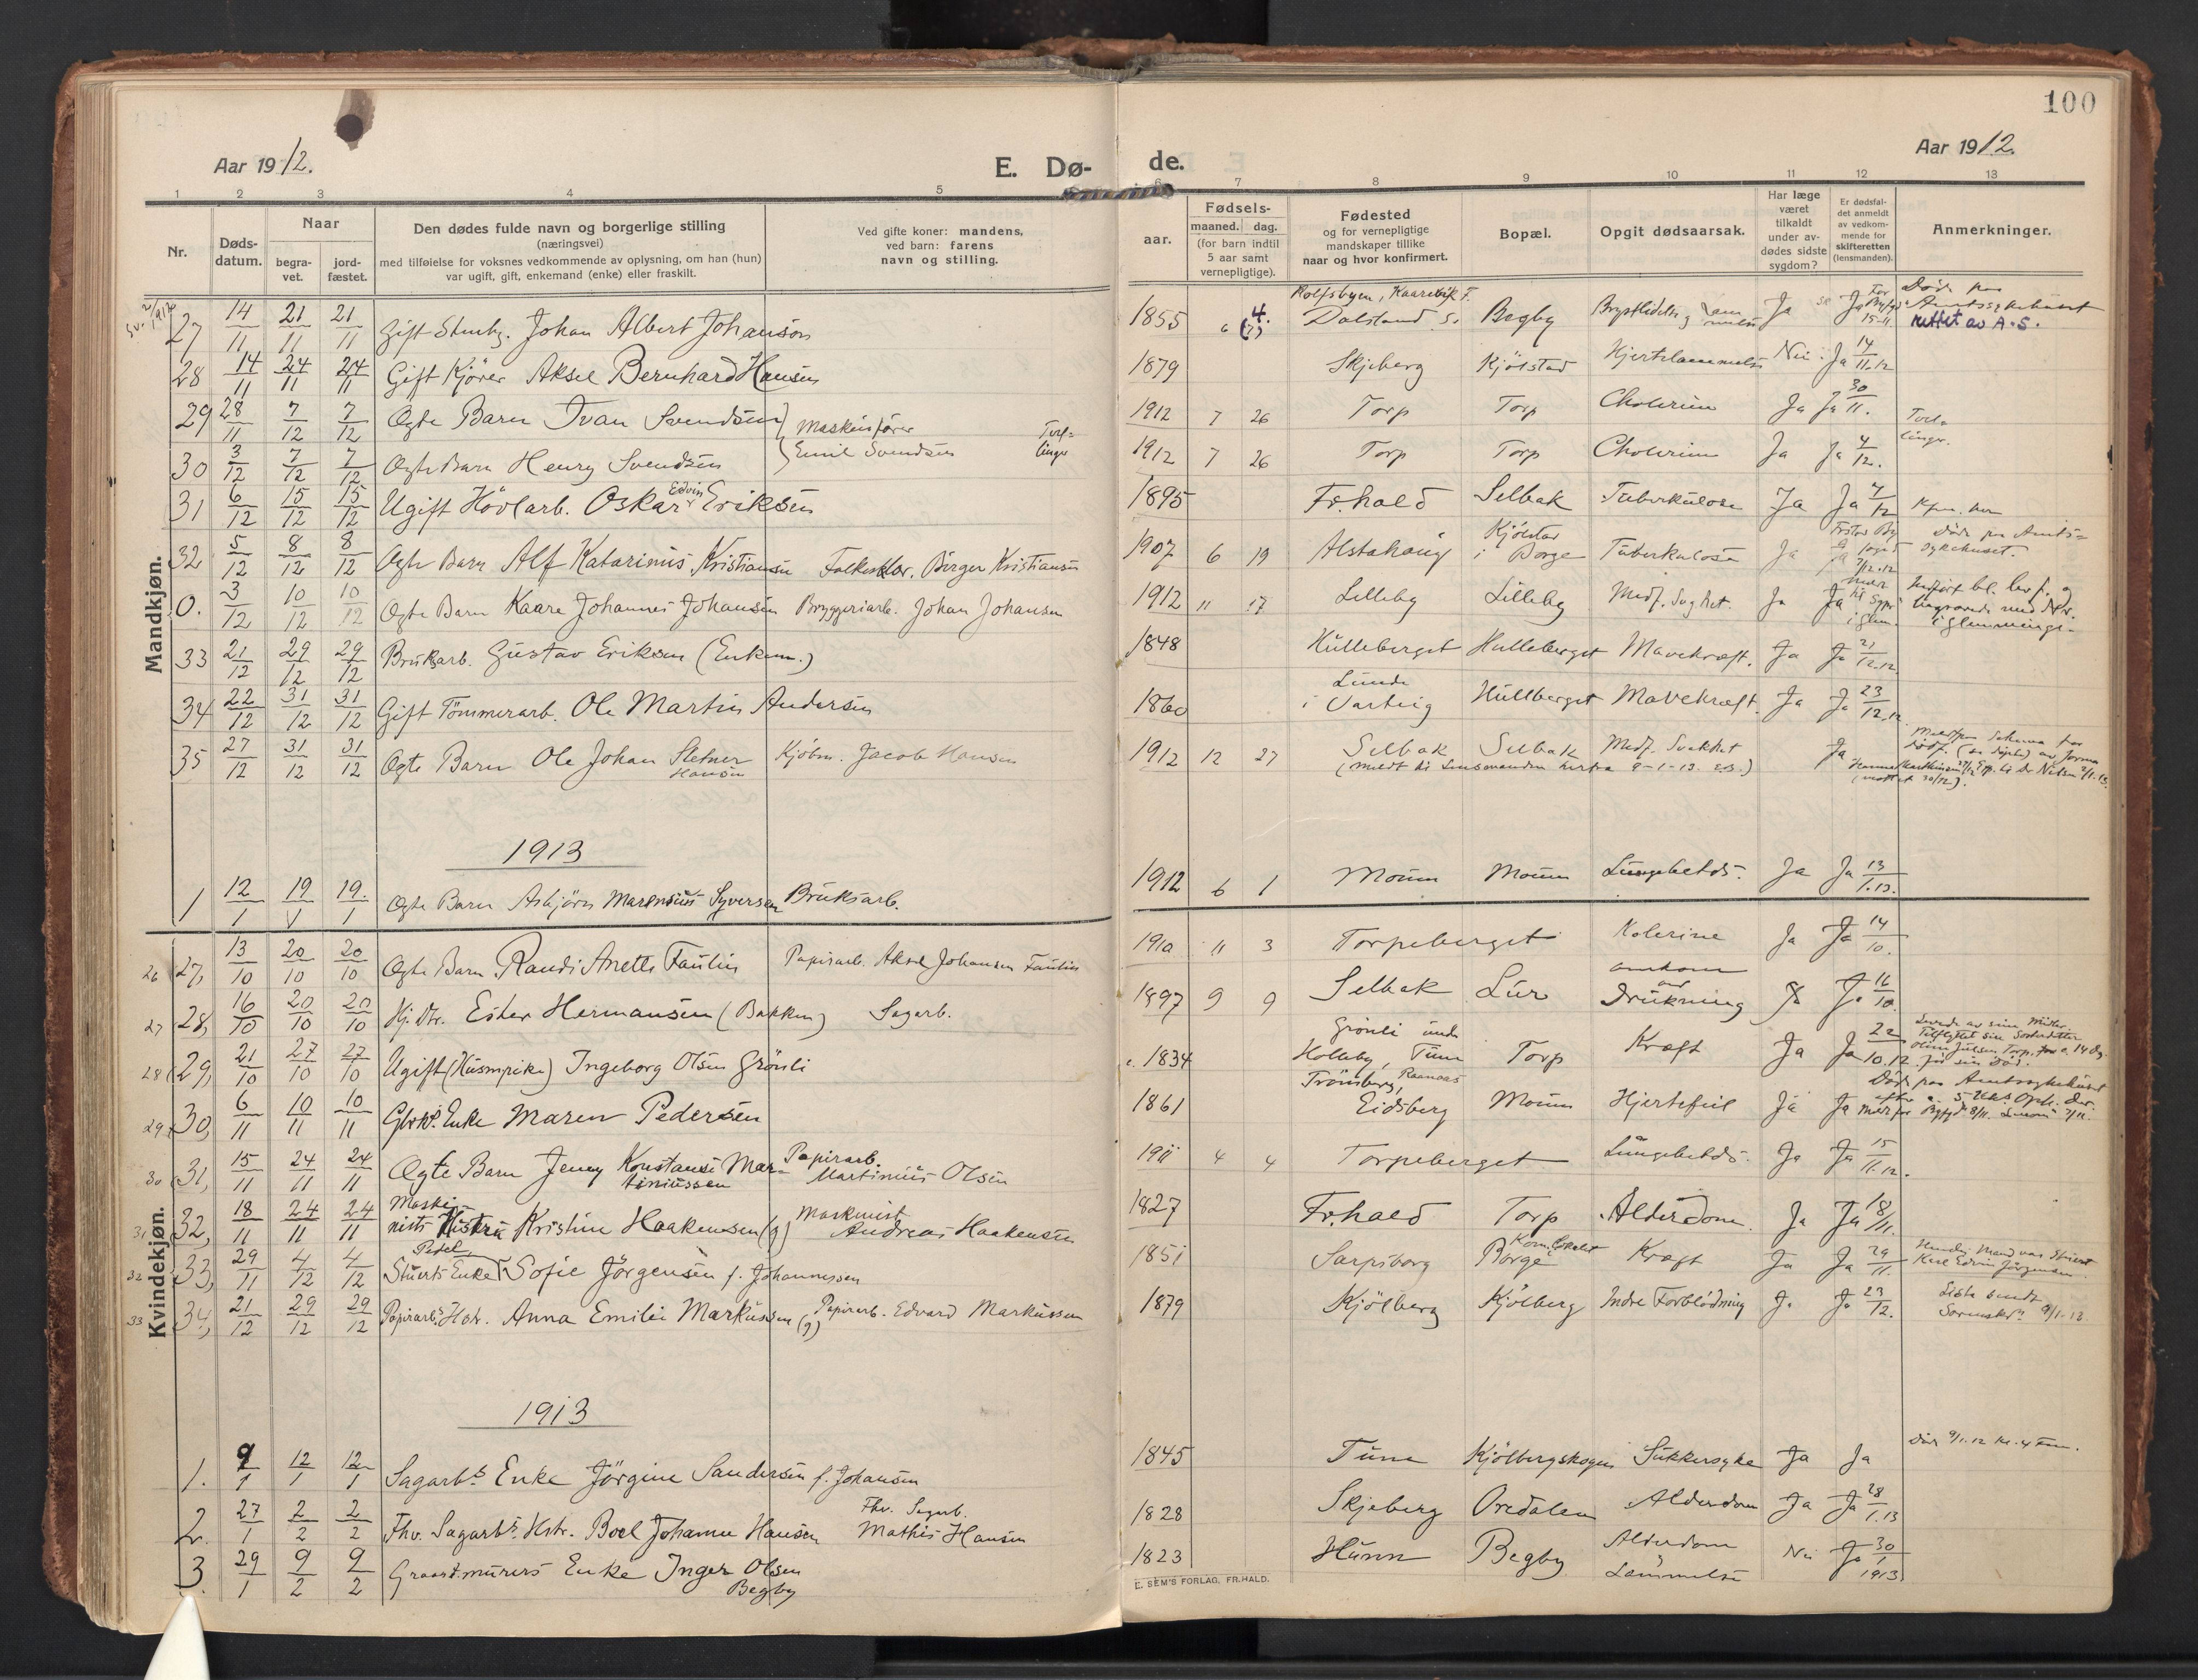 100
Aar 1912.
E. Dø-
de.
Aar 1912.
1 2 3 4 5 6 7 8 9 10 11 12 13
Nr.
Døds-
datum.
Naar
begra-
vet.
jord-
fæstet.
Den dødes fulde navn og borgerlige stilling
(næringsvei)
med tilføielse for voksnes vedkommende av oplysning, om han (hun)
var ugift, gift, enkemand (enke) eller fraskilt.
Ved gifte koner: mandens,
ved barn: farens
navn og stilling.
Fødsels-
aar.
maaned. dag.
(for barn indtil
5 aar samt
vernepligtige).
Fødested
og for vernepligtige
mandskaper tillike
naar og hvor konfirmert.
Bopæl.
Opgit dødsaarsak.
Har læge
været
tilkaldt
under av-
dødes sidste
sygdom?
Er dødsfal-
det anmeldt
av vedkom-
mende for
skifteretten
(lensmanden).
Anmerkninger.
Mandkjøn.
27 14/11 21/11 21/11 Gift Johan Albert Johanson 1855 6 4. (7) Rolfsbyen, Dalsland S. Begby Ja Ja 15-11 Død paa Amtssykehuset rettet av A.S.
28 14/11 24/11 24/11 Gift Kjører Aksel Bernhard Hansen 1879 Skjeberg Kjölstad Hjertelammelse Nei Ja 14/11.12
29 28/11 7/12 7/12 Ægte Barn Ivan Svendsen Maskinfører 1912 7 26 Torp Torp Cholerine Ja Ja 30/11.
30 3/12 7/12 7/12 Ægte Barn Henry Svendsen Emil Svendsen 1912 7 26 Torp Torp Cholerine Ja Ja 4/12.
31 6/12 15/12 15/12 Ugift Hövlarb. Oskar Edvin Eriksen 1895 Fr.hald Selbak Tuberkulose Ja Ja 7/12
32 5/12 8/12 8/12 Ægte Barn Alf Katarinus Kristiansen Birger Kristiansen 1907 6 19 Alstahaug Kjölstad i Borge Tuberkulose Ja 7/12.12 Död paa Amts-sykehuset.
0. 3/12 10/12 10/12 Ægte Barn Kaare Johannes Johansen Bryggeriarb. Johan Johansen 1912 11 17 Lilleby Lilleby Medf. Svaghet. Ja Ja
33 21/12 29/12 29/12 Bruksarb. Gustav Eriksen (Enkem.) 1848 Hulleberget Hulleberget Mavekræft. Ja Ja 21/12.12
34 22/12 31/12 31/12 Gift Tömmerarb. Ole Martin Andersen 1860 Lunde i Varteig Hullberget Mavekræft. Ja Ja 23/12.12
35 27/12 31/12 31/12 Ægte Barn Ole Johan Sletner Hansen Kjöbm. Jacob Hansen 1912 12 27 Selbak Selbak Medf. Svakhet Ja
(meldt til Lensmanden herfra 9-1-13.)
1913
1 12/1 19/1 19/1 Ægte Barn Asbjörn Marensius Syversen Bruksarb. 1912 6 1 Moum Moum Lungebetds. Ja Ja 13/1.13.
Kvindekjøn.
26 27, 13/10 20/10 20/10 Ægte Barn Randi Anette Faulin Papirarb. Aksel Johansen Faulin 1910 11 3 Torpeberget Kolerine Ja Ja 14/10.
27 28, 16/10 20/10 20/10 Hj. Dtr. Ester Hermansen (Bakken) Sagarb. 1897 9 9 Selbak Lur omkom ved Drukning Ja 16/10.
28 29, 21/10 27/10 27/10 Ugift (Husmpike) Ingeborg Olsen Grönli c. 1834 Grönli under Holleby, Tune Torp Kræft Ja Ja 22/10.12
29 30, 6/11 10/11 10/11 Enke Maren Pedersen 1861 Trömborg, Eidsberg Moum Hjertefeil Ja Ja Död paa Amtssykehuset
30 31, 15/11 24/11 24/11 Ægte Barn Jenny Konstanse Mar-tiniussen Papirarb. Martinius Olsen 1911 4 4 Torpeberget Lungebetds. Ja Ja 15/11.12.
31 32, 18/11 24/11 24/11 Maskinists Hustru Kristine Haakensen (g) Maskinist Andreas Haakensen 1827 Fr.hald Torp Alderdom. Ja Ja 18/11.
32 33, 29/11 4/12 4/12 Stuerts Enke Petel Sofie Jörgensen f. Johannessen 1851 Sarpsborg Borge Kræft Ja Ja 29/11. Mand var Stuert Karl Edvin Jörgensen.
33 34, 21/12 29/12 29/12 Papirarbs. Hstr. Anna Emilie Markussen (g) Papirarb. Edvard Markussen 1879 Kjölberg Kjölberg Indre Forblödning Ja Ja 23/12. Liste sendt 9/1-13
1913
1. 9/1 12/1 12/1 Sagarbs Enke Jörgine Sandersen f. Johansen 1845 Tune Kjölbergskogen Sukkersyke Ja Ja Död 9/1.12 kl. 4 Fm.
2. 27/1 2/2 2/2 Fhv. Sagarbs. Hstr. Boel Johanne Hansen Fhv. Sagarb. Mathis Hansen 1828 Skjeberg Oredalen Alderdom Ja Ja 28/1.13
3. 29/1 9/2 9/2 Graastmurers Enke Inger Olsen Begby 1823 Hunn Begby Alderdom Lammelse Nei Ja 30/1 1913
E. SEM'S FORLAG, FR.HALD.